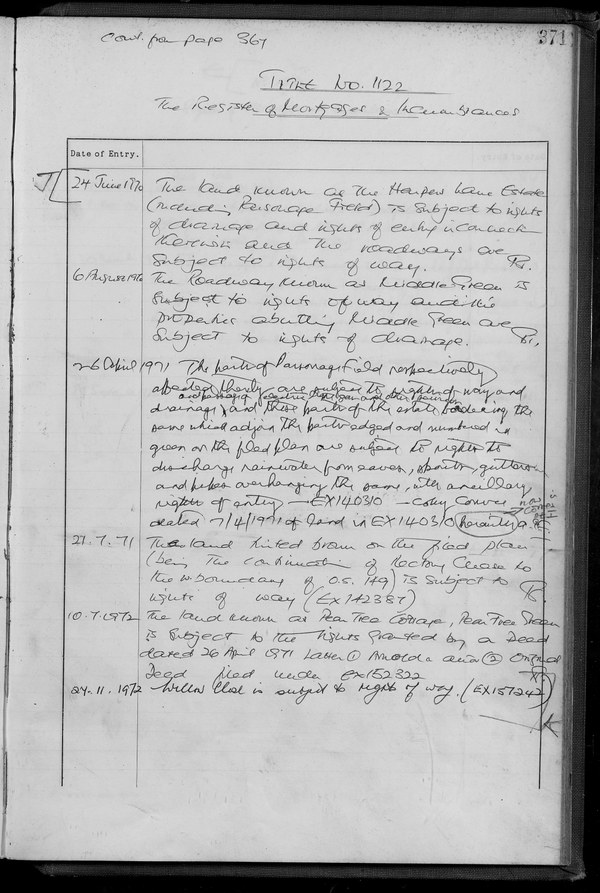 Cont. from page 367
371
TITLE NO. 1122
The Register of Mortgages & Incumbrances
Date of Entry.
24 June 1970 The land known as The Harpers Lane Estate
(including Parsonage Field) is subject to rights
of drainage and rights of entry in connection
therewith and the roadways are
subject to rights of way.
6 August 1970 The Roadway known as Middle Green is
subject to rights of way and the
properties abutting Middle Green are
subject to rights of drainage.
26 April 1971 The parts of Parsonage Field respectively
affected thereby are subject to rights of way and
and passage of electric and other
drainage, and those parts of the estate bordering the
same which adjoin the parts edged and numbered in
green on the filed plan are subject to rights to
discharge rainwater from eaves, spouts, gutters
and pipes overhanging the same, with ancillary
rights of entry — EX14030 — copy Conveyance
dated 7/4/1971 of land in EX14030
21.7.71 The land tinted brown on the filed plan
(being the continuation of Rectory Close to
the W. boundary of O.S. 149) is subject to
rights of way (EX142387)
10.7.1972 The land known as Pear Tree Cottage, Pear Tree Green
is subject to the rights granted by a Deed
dated 26 April 1971 Latter ① Arnold & anor ②
Deed filed under EX152322
24.11.1972 Willow Close is subject to rights of way. (EX157242)